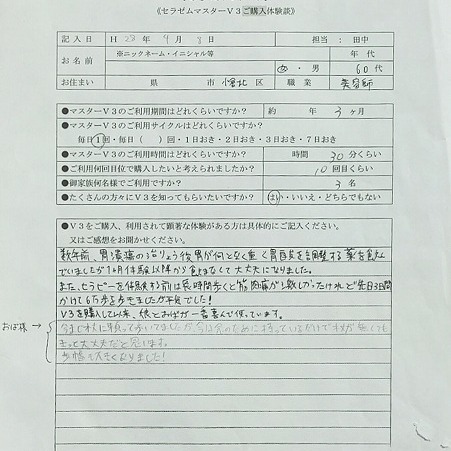 《セラゼムマスターV3ご購入体験談》
記入日 H 23年 9月 8日 担当：田中
お名前 ※ニックネーム・イニシャル等 年代
女・男 60代
お住まい 県 市 小倉北 区 職業 美容師
●マスターV3のご利用期間はどれくらいですか？ 約 年 3ヶ月
●マスターV3のご利用サイクルはどれくらいですか？
毎日1回・毎日（ ）回・1日おき・2日おき・3日おき・7日おき
時間 30分くらい
●ご利用何回目位で購入したいと考えられましたか？ 10回目くらい
●御家族何名様でご利用ですか？ 3名
●たくさんの方々にV3を知ってもらいたいですか？ はい・いいえ・どちらでもない
●V3をご購入、利用されて顕著な体験がある方は具体的にご記入ください。
又はご感想をお聞かせください。
数年前、胃潰瘍の治りょう後胃が何となく重く胃酸を調整する薬を飲ん
でいましたが1ヵ月体験以降から飲まなくて大丈夫になりました。
また、セラピーを体験する前は長時間歩くと筋肉痛が激しかったけれど先日3日間
かけて6万歩を歩きましたが平気でした！
V3を購入して以来、娘とおばが一番喜んで使っています。
おば様
今まで杖に頼って歩いてましたが今は念のために持っているだけで杖が無くても
きっと大丈夫だと思います。
歩幅も大きくなりました！